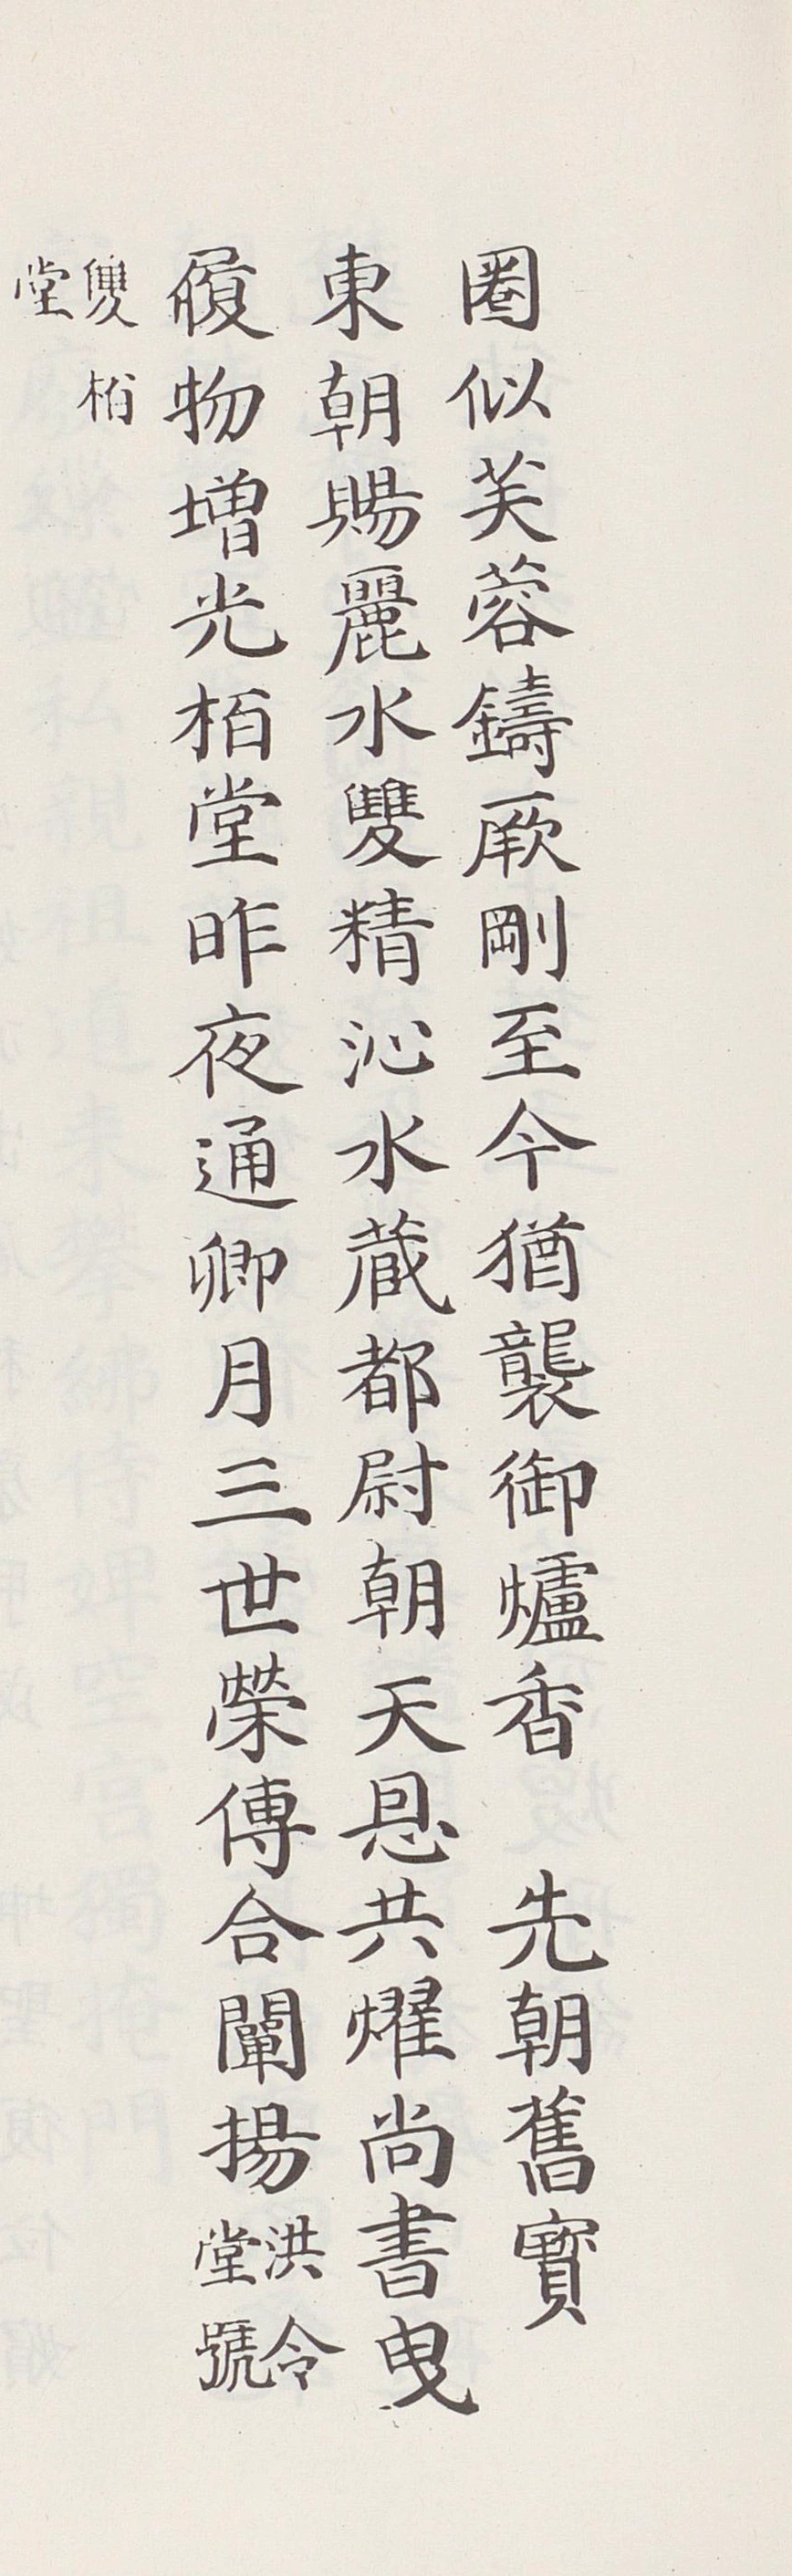 圈似芙蓉鑄厥剛至今猶襲御爐香　先朝舊寶
東朝賜麗水雙精沁水蔵都尉朝天恩共耀尚書曳
履物增光栢堂昨夜通卿月三世榮傳合闡揚洪令堂號
雙栢堂